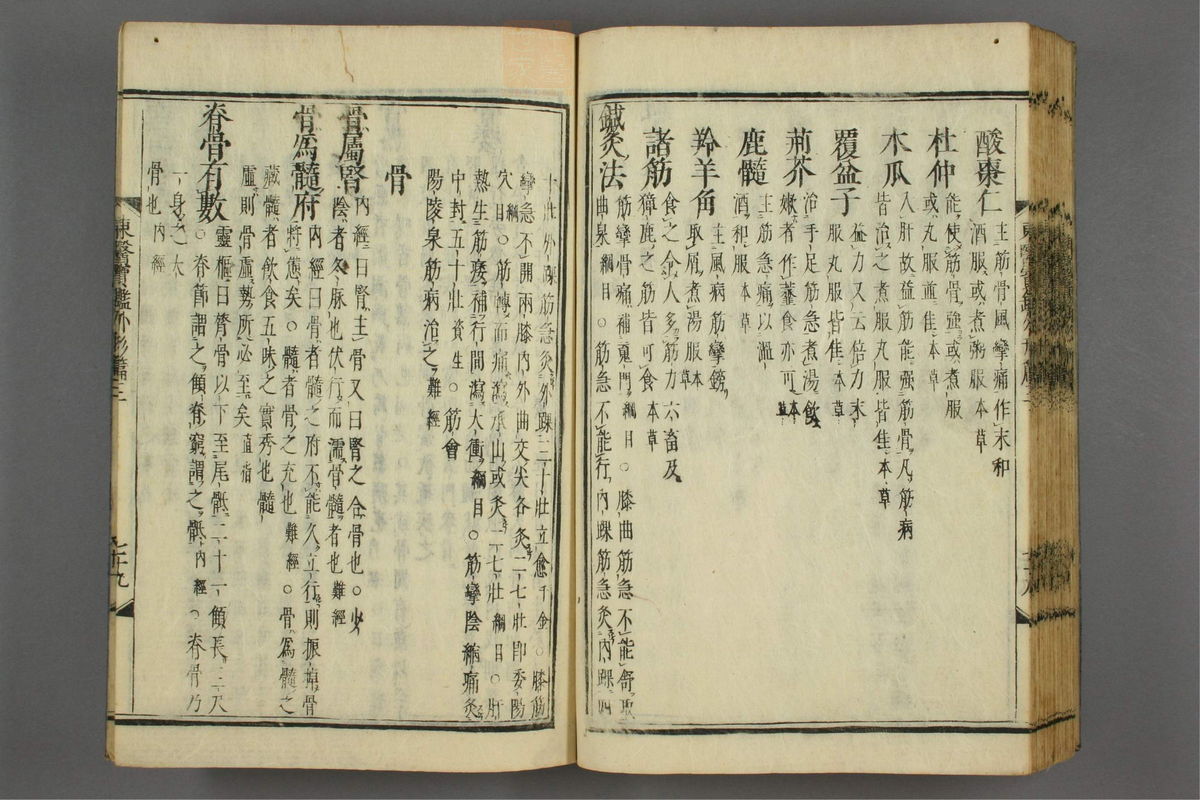 酸棗仁 主筋骨風攣痛作末和
酒服或煮粥服本草
杜仲 能使筋骨強或煮服
或丸服並佳本草
木瓜 入肝故益筋能強筋骨凡筋病
皆治之煮服丸服皆佳本草
覆盆子 益力又云倍力末
服丸服皆佳本草
荊芥 治手足筋急煮湯飲
嫩者作虀食亦可本草
鹿髓 主筋急痛以溫
酒和服本草
羚羊角 主風病筋攣
取屑煮湯服本草
諸筋 食之令人多筋力六畜及
獐鹿之筋皆可食本草
鍼灸法 筋攣骨痛補魂門綱目○膝曲筋急不能舒取
曲泉綱目○筋急不能行內踝筋急灸內踝四
十壯外踝筋急灸外踝三十壯立愈千金○膝筋
攣急不開兩膝內外曲交尖各灸二七壯卽委陽
穴綱目○筋轉而痛瀉承山或灸二七壯綱目○肝
熱生筋痿補行間瀉大衝綱目○筋攣陰縮痛灸
中封五十壯資生○筋會
陽陵泉筋病治之難經
骨
骨屬腎 內經曰腎主骨又曰腎之合骨也○少
陰者冬脉也伏行而濡骨髓者也難經
骨爲髓府 內經曰骨者髓之府不能久立行則振掉骨
將憊矣○髓者骨之充也難經○骨爲髓之
藏髓者飮食五味之實秀也髓
虛則骨虛勢所必至矣直指
脊骨有數 靈樞曰膂骨以下至尾骶二十一節長三尺
○脊節謂之傾脊窮謂之骶內經○脊骨乃
一身之大
骨也內經
東醫寶鑑外形篇三